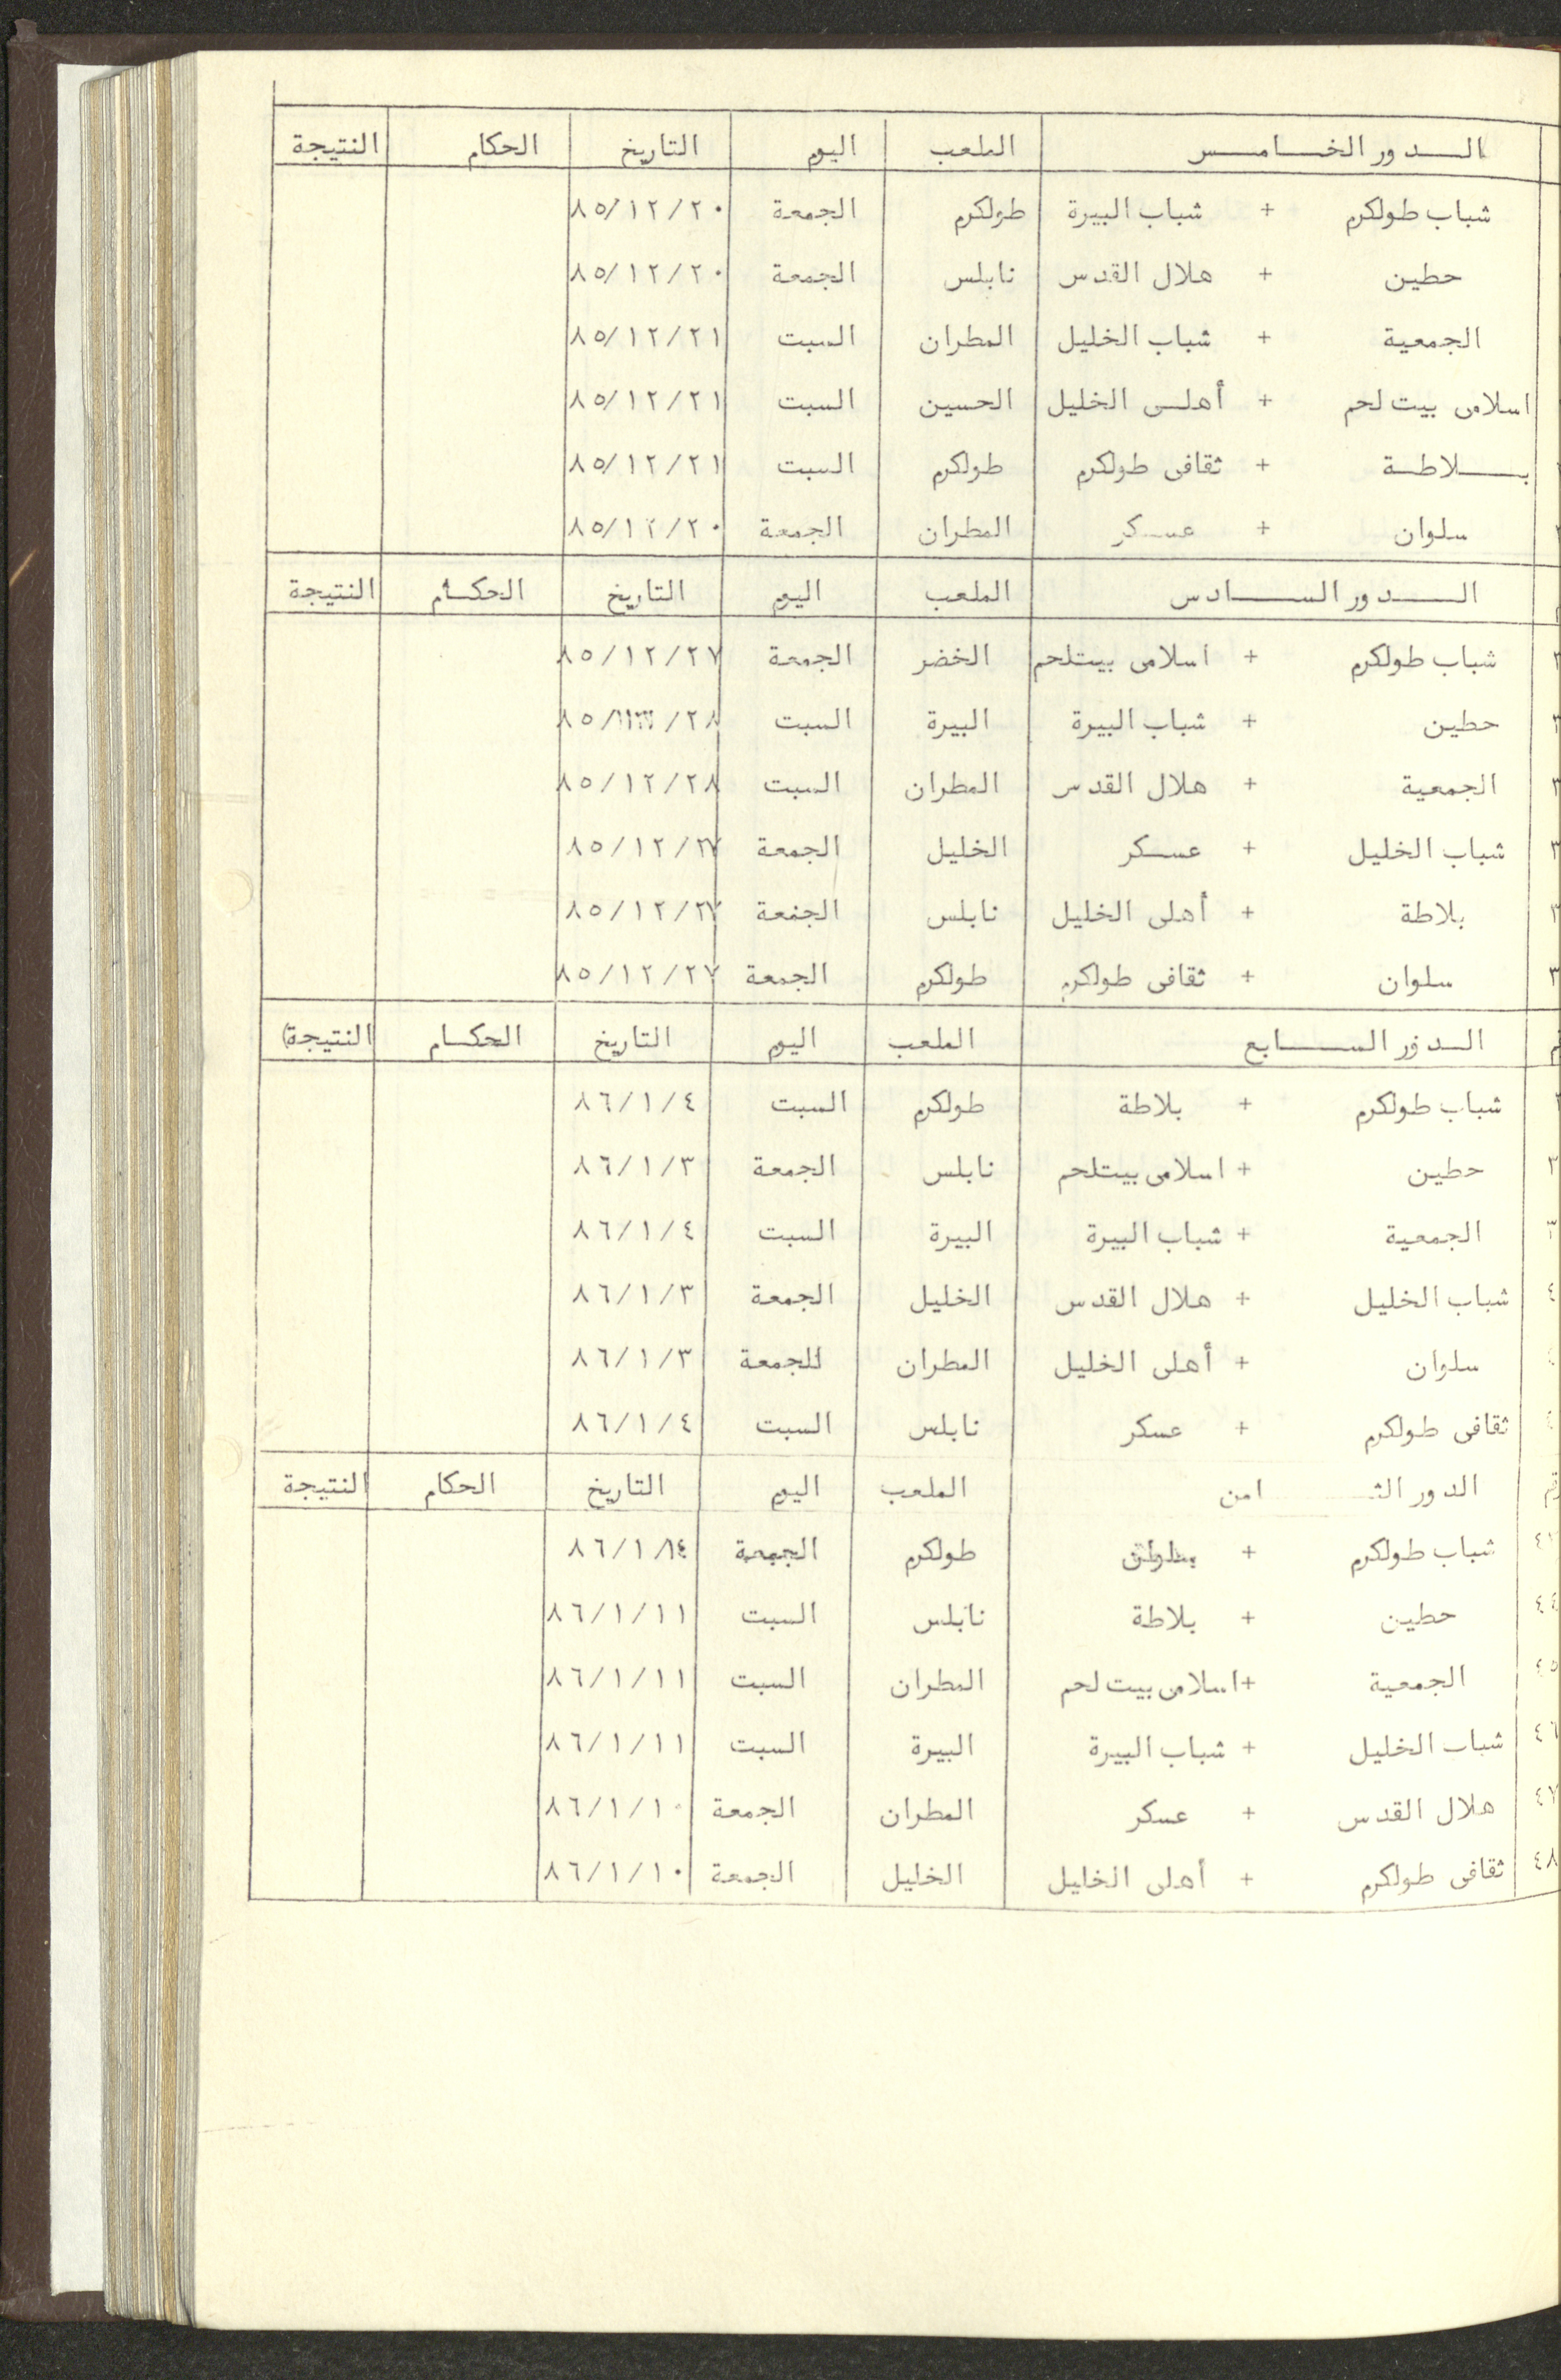 الـــدور الخـــامـــس الملعب اليوم التاريخ الحكام النتيجة
شباب طولكرم + شباب البيرة طولكرم الجمعة ٨٥/١٢/٢٠
حطين + هلال القدس نابلس الجمعة ٨٥/١٢/٢٠
الجمعية + شباب الخليل المطران السبت ٨٥/١٢/٢١
اسلامى بيت لحم + أهلـى الخليل الحسين السبت ٨٥/١٢/٢١
بـــلاطـة + ثقافى طولكرم طولكرم السبت ٨٥/١٢/٢١
سلوان + عسـكر المطران الجمعة ٨٥/١٢/٢٠
الـــدور الســـادس الملعب اليوم التاريخ الحكـام النتيجة
شباب طولكرم + اسلامى بيتلحم الخضر الجمعة ٨٥/١٢/٢٧
حطين + شباب البيرة البيرة السبت
الجمعية + هلال القدس المطران السبت ٨٥/١٢/٢٨
شباب الخليل + عسـكر الخليل الجمعة ٨٥/١٢/٢٧
بلاطة + أهلى الخليل نابلس الجمعة ٨٥/١٢/٢٧
سلوان + ثقافى طولكرم طولكرم الجمعة ٨٥/١٢/٢٧
الـــدور الســـابع الملعب اليوم التاريخ الحكـام النتيجة)
شباب طولكرم + بلاطة طولكرم السبت ٨٦/١/٤
حطين + اسلامى بيتلحم نابلس الجمعة ٨٦/١/٣
الجمعية + شباب البيرة البيرة السبت ٨٦/١/٤
شباب الخليل + هلال القدس الخليل الجمعة ٨٦/١/٣
سلوان + أهلى الخليل المطران الجمعة ٨٦/١/٣
ثقافى طولكرم + عسكر نابلس السبت ٨٦/١/٤
الدور الثـ امن الملعب اليوم التاريخ الحكام النتيجة
شباب طولكرم + طولكرم الجمعة
٤٤ حطين + بلاطة نابلس السبت ٨٦/١/١١
٤٥ الجمعية + اسلامى بيت لحم المطران السبت ٨٦/١/١١
٤٦ شباب الخليل + شباب البيرة البيرة السبت ٨٦/١/١١
٤٧ هلال القدس + عسكر المطران الجمعة ٨٦/١/١٠
٤٨ ثقافى طولكرم + أهلى الخليل الخليل الجمعة ٨٦/١/١٠